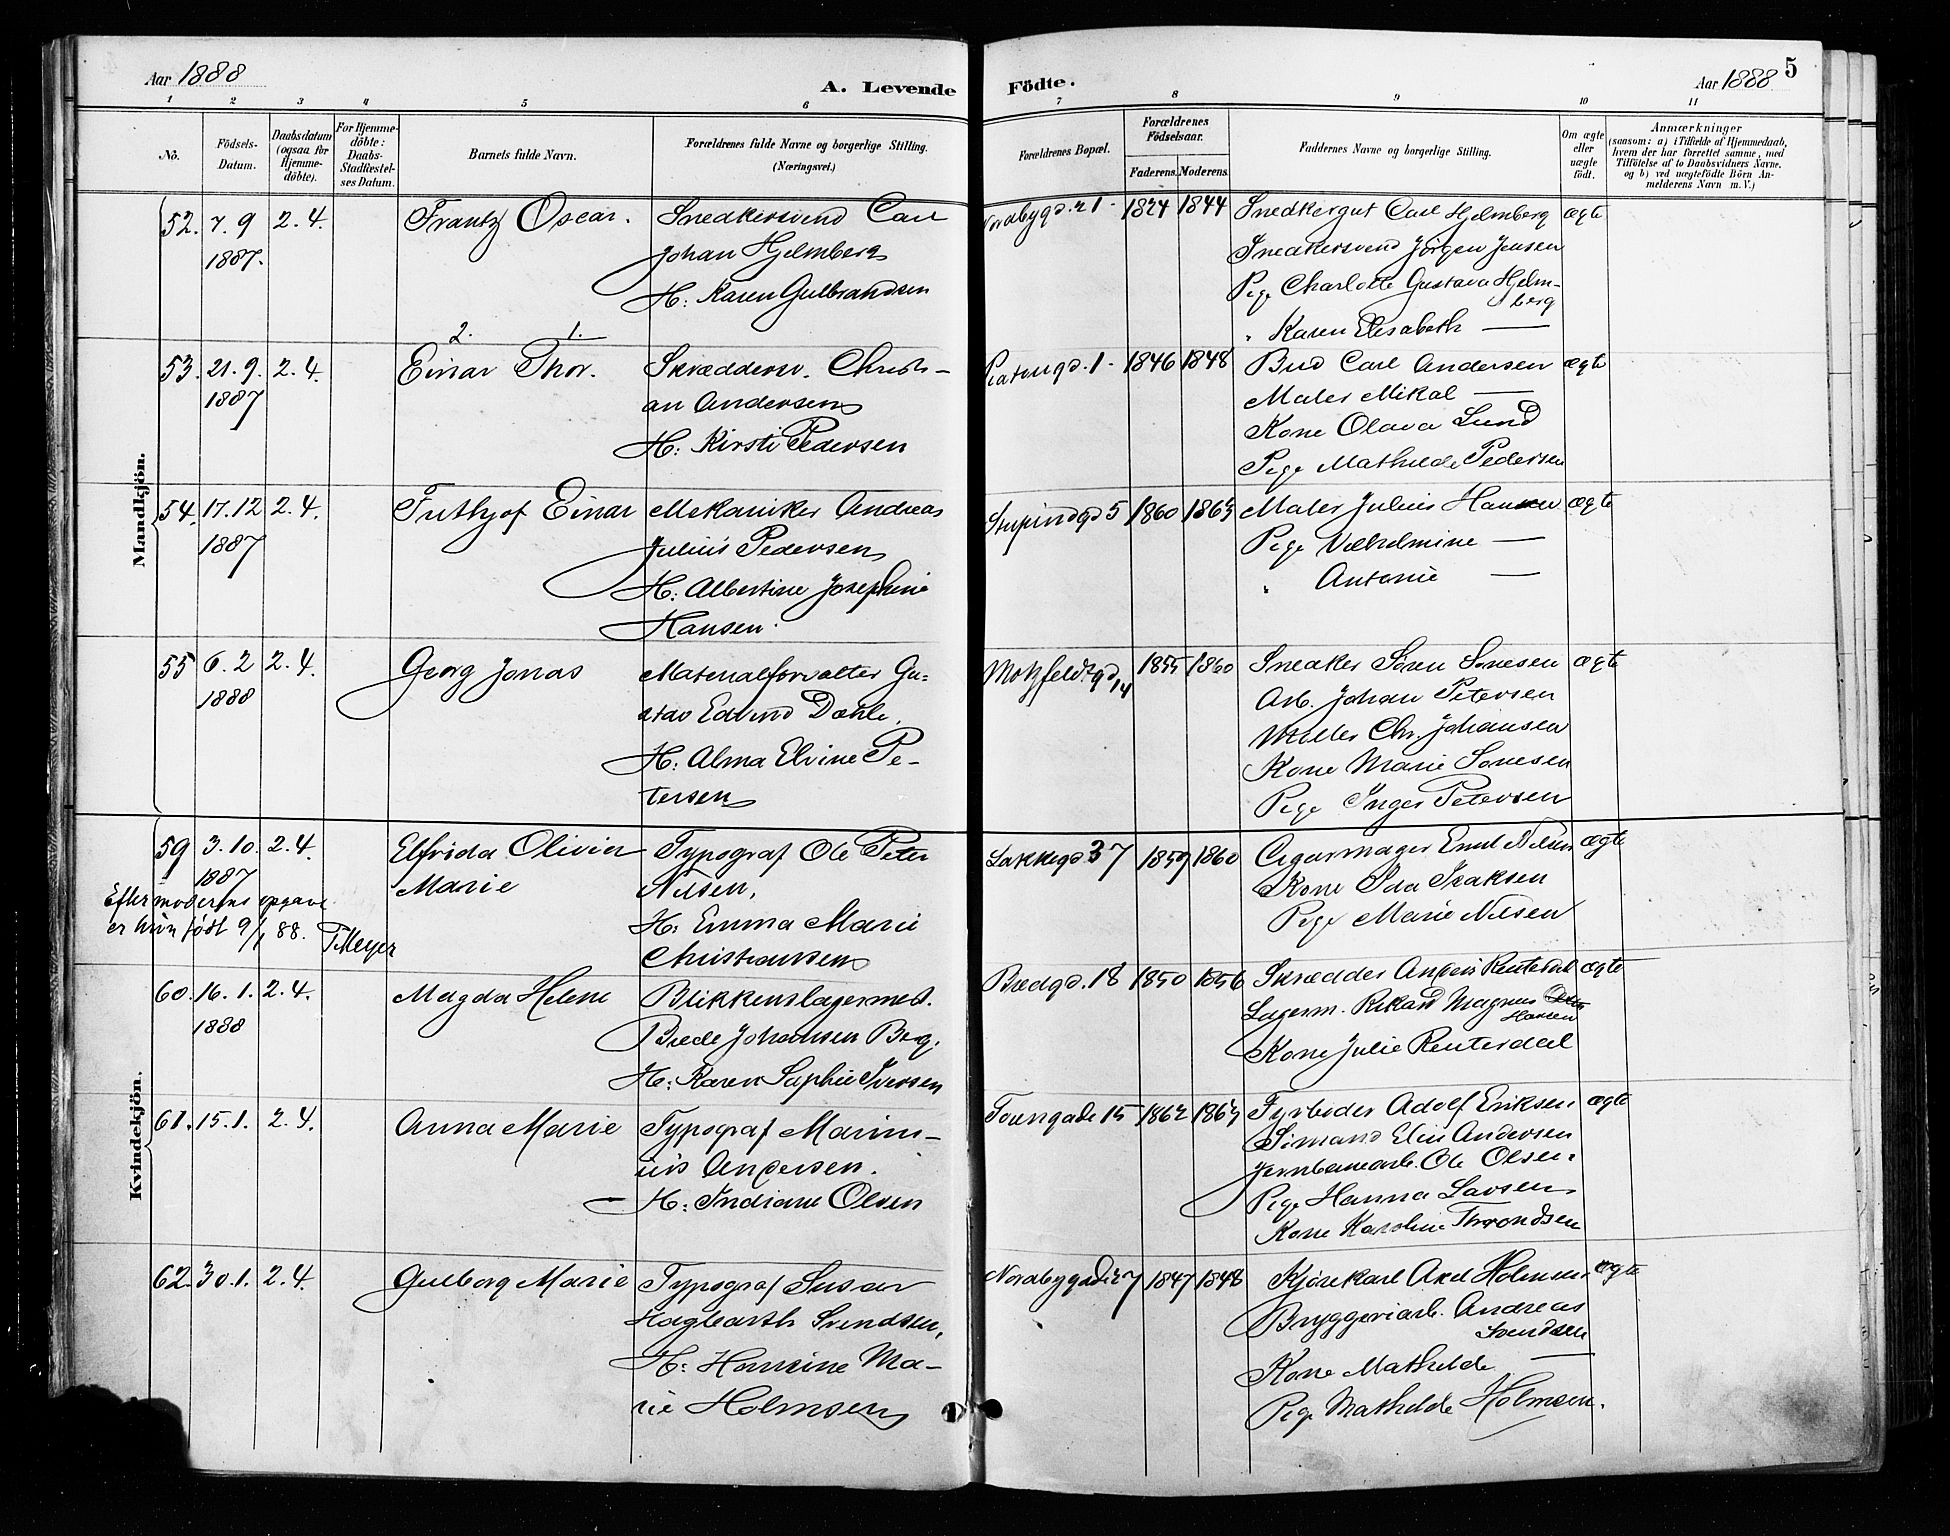 Aar 1888
A. Levende
1 2 3 4 5 6
No.
Födsels-
Datum.
Daabsdatum
(ogsaa for
Hjemme-
döbte).
For Hjemme-
döbte:
Daabs-
Stadfæstel-
ses Datum.
Barnets fulde Navn.
Forældrenes fulde Navne og borgerlige Stilling.
(Næringsvei.)
Mandkjön.
52. 7. 9 2. 4. Frantz Oscar. Snedkersvend Carl
1887. Johan Hjelmberg
H: Karen Gulbrandsen
2. 1.
53. 21. 9. 2. 4. Einar Thor. Skræddersv. Christi-
1887 an Andersen
H: Kirsti Pedersen
54. 17. 12 2. 4. Frithjof Einar Mekaniker Andreas
1887 Julius Pedersen
H: Albertine Josephine
Hansen.
55 6. 2 2. 4. Georg Jonas Materialforvalter Gu-
1888 stav Edvind Dæhle.
H: Alma Elvine Pe-
tersen
Kvindekjön.
59 3. 10. 2. 4. Elfrida Olivia Typograf Ole Peter
1887 Marie Nilsen,
Efter moderens opgave
er hun født 9/1 88. T Meyer
H: Emma Marie
Christiansen
60. 16. 1. 2. 4. Magda Helene Blikkenslagermest.
1888 Brede Johansen Berg.
H: Karen Sophie Iversen
61. 15. 1. 2. 4. Anna Marie Typograf Marin-
ius Andersen.
H: Indiane Olsen
62. 30. 1. 2. 4. Gulborg Marie Typograf
Hagbarth Svendsen,
H: Hansine Ma-
rie Holmsen
Födte.
Aar 1888 5
7 8 9 10 11
Forældrenes Bopæl.
Forældrenes
Födselsaar.
Faderens. Moderens.
Faddernes Navne og borgerlige Stilling.
Om ægte
eller
uægte
födt.
Anmærkninger
(saasom: a) i Tilfælde af Hjemmedaab,
hvem der har forrettet samme, med
Tilföielse af to Daabsvidners Navne.
og b) ved uægtefödte Börn An-
melderens Navn m. V.)
Nordbygd. 21. 1824 1844 Snedkergut Carl Hjelmberg ægte
Snedkersvend Jörgen Jensen
Pige Charlotte Gustava Hjelm-
berg
" Karen Elisabeth —
gd. 1. 1846 1848 Bud Carl Andersen ægte
Maler Mikal —
Kone Olava Lund
Pige Mathilde Pedersen
Stupindgd 5 1860 1863 Maler Julius Hansen ægte
Pige Vilhelmine —
" Antonie —
Motzfeldtsgd. 14 1855 1860 Snedker Sören Sönesen ægte
Arb. Johan Petersen
Möller Chr. Johansen
Kone Marie Sönesen
Pige Inger Petersen
Lakkegd. 37 1859 1860 Cigarmager Emil Nilsen ægte
Kone Ida Isaksen
Pige Marie Nilsen
Bredgd. 18 1850 1856 Skrædder Anders Reuterdal ægte
Lagerm. Rikard Magnus
Hansen
Kone Julie Reuterdal
Tøiengade 15 1862 1863 Fyrböder Adolf Eriksen ægte
Sömand Elis Andersen
Jernbanearb. Ole Olsen.
Pige Hanna Larsen
Kone Karoline Throndsen
Nordbygade 27 1847 1848 Kjörekarl Axel Holmsen ægte
Bryggeriarb. Andreas
Svendsen
Kone Mathilde —
Pige Mathilde Holmsen.